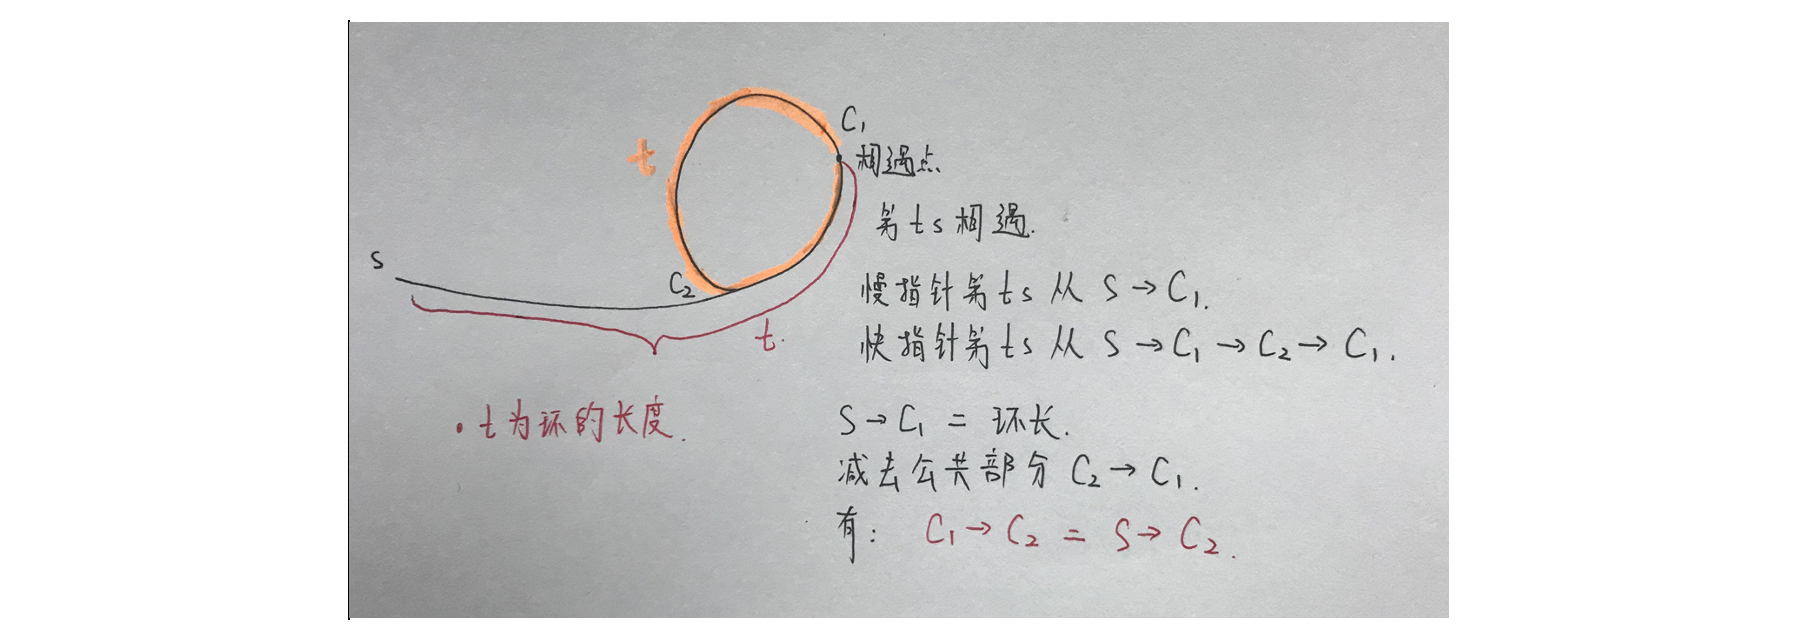 C₁
t
相遇点
第ts相遇.
S
C₂
慢指针第ts从 S→C₁.
t.
快指针第ts从 S→C₁→C₂→C₁.
·t为环的长度.
S→C₁ = 环长.
减去公共部分 C₂→C₁.
有: C₁→C₂ = S→C₂.